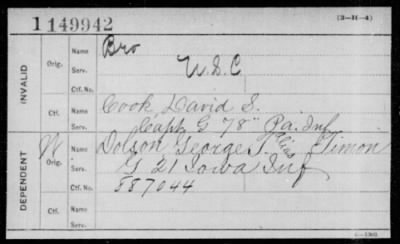 1149942
(3-H-4)
INVALID
Orig.
Name
Bro
Serv.
U.S.C
Ctf. No.
Ctf.
Name
Cook, David S.
Serv.
Capt G 78" Pa. Inf
DEPENDENT
W
Orig.
Name
Dolson George S. alias Timon
Serv.
G 21 Iowa Inf
Ctf. No.
887044
Ctf.
Name
Serv.
6-1302